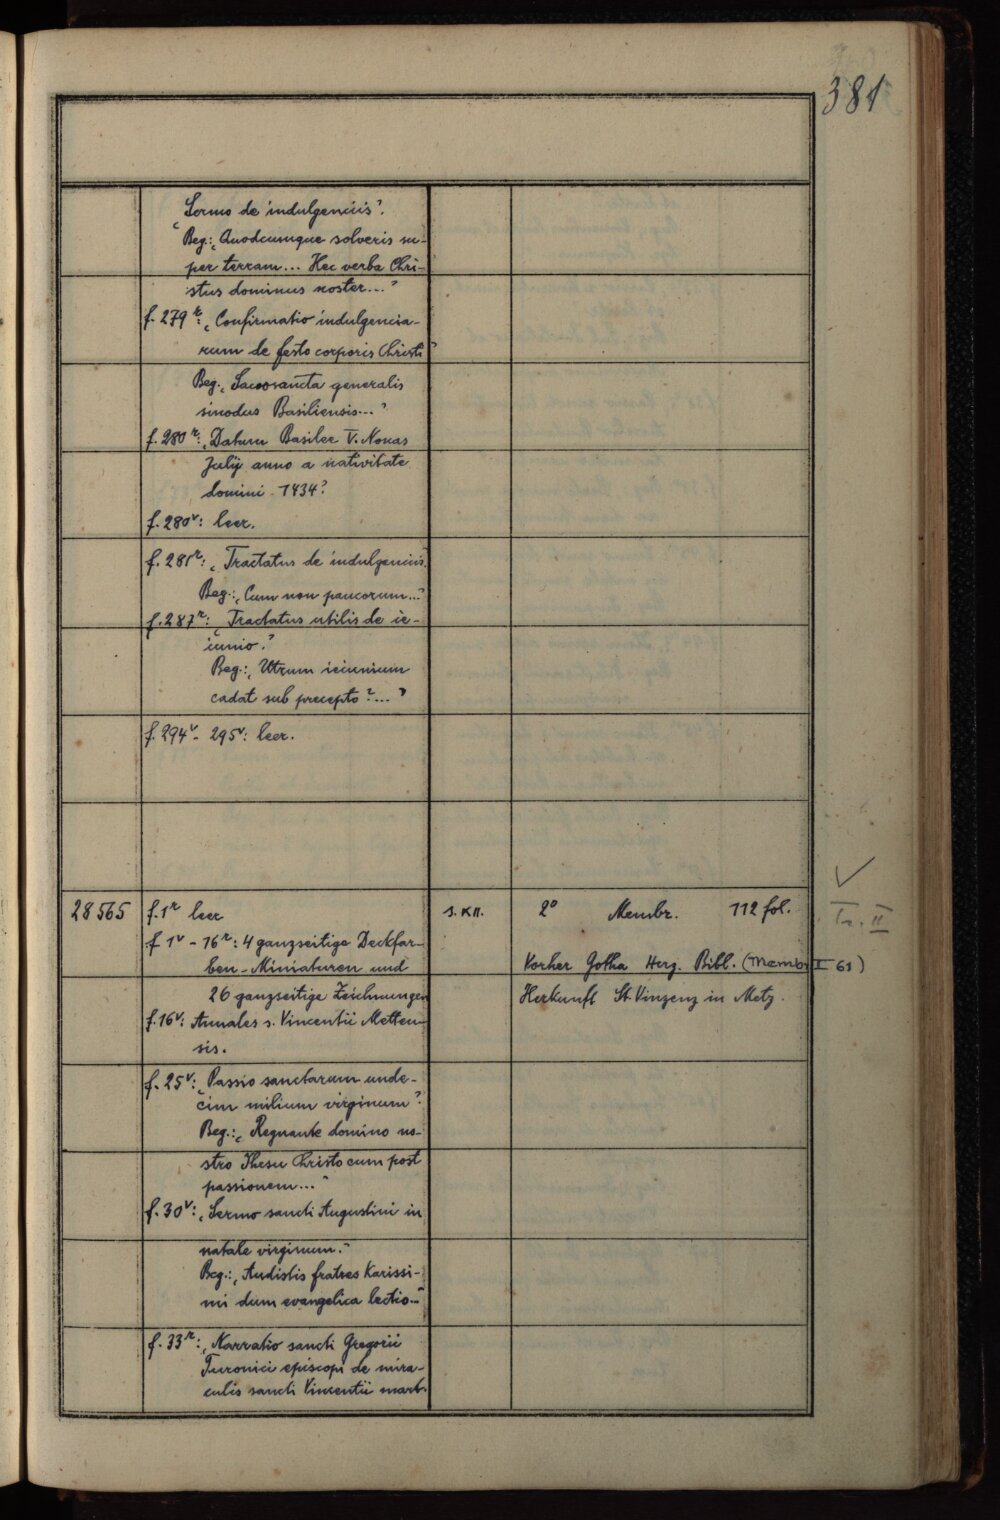 381
„Sermo de indulgenciis“.
Beg.: „Quodcumque solveris su-
per terram... Hec verba Chri-
stus dominus noster...“
f. 279r: „Confirmatio indulgencia-
rum de festo corporis Christi“
Beg. „Sacrosancta generalis
sinodus Basiliensis...“
f. 280r: „Datum Basilee V. Nonas
Julij anno a nativitate
domini 1434“.
f. 280v: leer.
f. 281r: „Tractatus de indulgenciis“.
Beg.: „Cum non paucorum...“
f. 287r: „Tractatus utilis de ie-
iunio.“
Beg.: „Utrum ieiunium
cadat sub precepto?...“
f. 294v - 295v: leer.
28565 f. 1r leer s. XII. 2o Membr. 112 fol.
Tr. II
f 1v - 16r: 4 ganzseitige Deckfar-
ben-Miniaturen und Vorher Gotha Herz. Bibl. (Membr I 61)
26 ganzseitige Zeichnungen Herkunft St. Vinzenz in Metz.
f. 16v: Annales s. Vincentii Metten-
sis.
f. 25v: „Passio sanctarum unde-
cim milium virginum“.
Beg.: „Regnante domino no-
stro Jhesu Christo cum post
passionem...“
f. 30v: „Sermo sancti Augustini in
natale virginum.“
Beg.: „Audistis fratres karissi-
mi dum evangelica lectio...“
f. 33r: „Narratio sancti Gregorii
Turonici episcopi de mira-
culis sancti Vincentii mart.